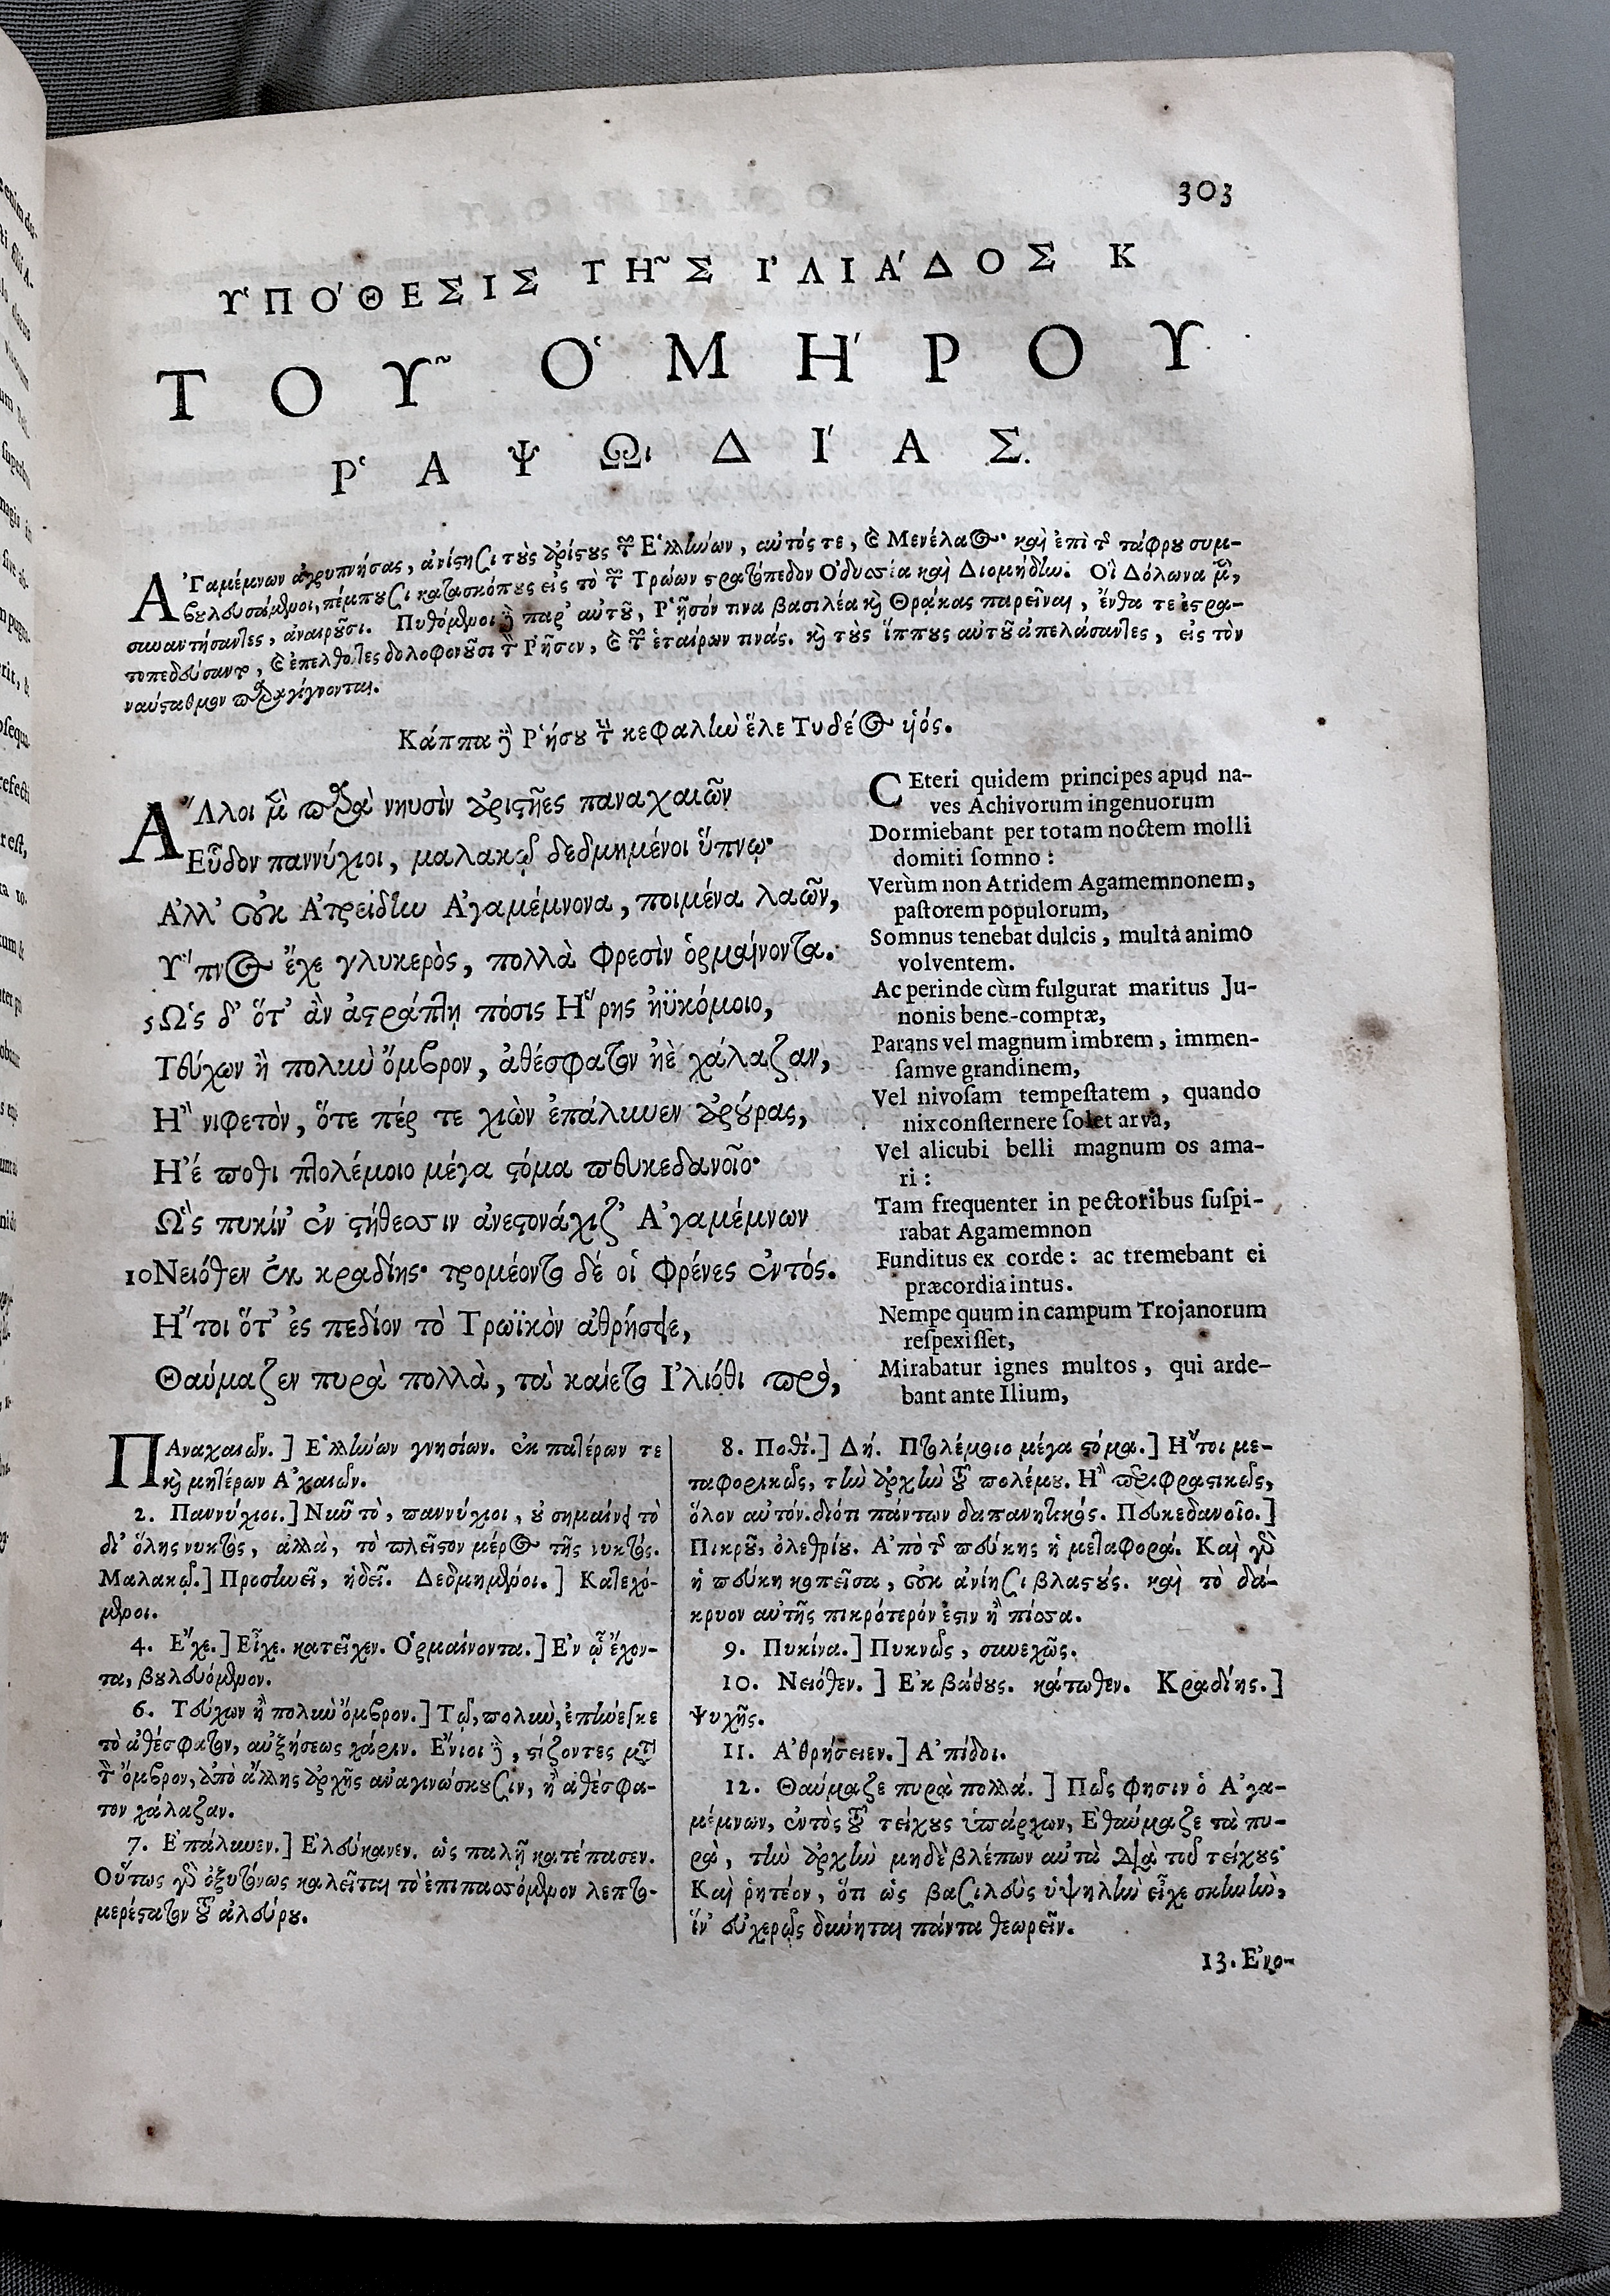 303
ὙΠΟ´ΘΕΣΙΣ ΤΗ῀Σ ἸΛΙΑ´ΔΟΣ Κ
ΤΟΥ῀ ὉΜΗ´ΡΟΥ
ῬΑΨΩιΔΙ´ΑΣ.
ἈΓαμέμνων ἀγρυπνήσας, ἀνίστησι τοὺς ἀρίστους τῶν Ἑλλήνων, αὐτός τε, καὶ Μενέλαος· καὶ ἐπὶ τῆς τάφρου συμ-
βουλευσάμενοι, πέμπουσι κατασκόπους εἰς τὸ τῶν Τρώων στρατόπεδον Ὀδυσσέα καὶ Διομήδην. Οἳ Δόλωνα μὲν,
συναντήσαντες, ἀναιροῦσι. Πυθόμενοι δὲ παρ' αὐτοῦ, Ῥῆσόν τινα βασιλέα καὶ Θρᾷκας παρεῖναι, ἔνθα τε ἐστρα-
τοπεδεύσαντο, καὶ ἐπελθόντες δολοφονοῦσι τὸν Ῥῆσον, καὶ τῶν ἑταίρων τινάς. καὶ τοὺς ἵππους αὐτοῦ ἀπελάσαντες, εἰς τὸν
ναύσταθμον παραγίγνονται.
Κάππα δὲ Ῥήσου τὴν κεφαλὴν ἕλε Τυδέος υἱός.
ἌΛλοι μὲν παρὰ νηυσὶν ἀριστῆες παναχαιῶν
Εὗδον παννύχιοι, μαλακῷ δεδμημένοι ὕπνῳ·
Ἀλλ' οὐκ Ἀτρείδην Ἀγαμέμνονα, ποιμένα λαῶν,
Ὕπνος ἔχε γλυκερὸς, πολλὰ φρεσὶν ὁρμαίνοντα.
5 Ὡς δ' ὅτ' ἂν ἀστράπτῃ πόσις Ἥρης ἠϋκόμοιο,
Τεύχων ἢ πολὺν ὄμβρον, ἀθέσφατον ἠὲ χάλαζαν,
Ἢ νιφετὸν, ὅτε πέρ τε χιὼν ἐπάλυνεν ἀρούρας,
Ἠέ ποθι πτολέμοιο μέγα στόμα πευκεδανοῖο·
Ὣς πυκίν' ἐν στήθεσσιν ἀνεστονάχιζ' Ἀγαμέμνων
10 Νειόθεν ἐκ κραδίης· τρομέοντο δέ οἱ φρένες ἐντός.
Ἤτοι ὅτ' ἐς πεδίον τὸ Τρωϊκὸν ἀθρήσειε,
Θαύμαζεν πυρὰ πολλὰ, τὰ καίετο Ἰλιόθι πρὸ,
CEteri quidem principes apud na-
ves Achivorum ingenuorum
Dormiebant per totam noctem molli
domiti somno :
Verùm non Atridem Agamemnonem,
pastorem populorum,
Somnus tenebat dulcis, multa animo
volventem.
Ac perinde cùm fulgurat maritus Ju-
nonis bene-comptæ,
Parans vel magnum imbrem, immen-
samve grandinem,
Vel nivosam tempestatem, quando
nix consternere solet arva,
Vel alicubi belli magnum os ama-
ri :
Tam frequenter in pectoribus suspi-
rabat Agamemnon
Funditus ex corde : ac tremebant ei
præcordia intus.
Nempe quum in campum Trojanorum
respexisset,
Mirabatur ignes multos, qui arde-
bant ante Ilium,
ΠΑναχαιῶν.] Ἑλλήνων γνησίων. ἐκ πατέρων τε
καὶ μητέρων Ἀχαιῶν.
2. Παννύχιοι.] Νῦν τὸ, παννύχιοι, οὐ σημαίνει τὸ
δι' ὅλης νυκτὸς, ἀλλὰ, τὸ πλεῖστον μέρος τῆς νυκτός.
Μαλακῷ.] Προσηνεῖ, ἡδεῖ. Δεδμημένοι.] Κατεχό-
μενοι.
4. Ἔχε.] Εἶχε. κατεῖχεν. Ὁρμαίνοντα.] Ἐν ᾧ ἔχον-
τα, βουλευόμενον.
6. Τεύχων ἢ πολὺν ὄμβρον.] Τῷ, πολὺν, ἐπήνεγκε
τὸ ἀθέσφατον, αὐξήσεως χάριν. Ἔνιοι δὲ, στίζοντες μετὰ
τὸν ὄμβρον, ἀπὸ ἄλλης ἀρχῆς ἀναγινώσκουσιν, ἢ ἀθέσφα-
τον χάλαζαν.
7. Ἐπάλυνεν.] Ἐλεύκανεν. ὡς παλῇ κατέπασεν.
Οὕτως γὰρ ὀξυτόνως καλεῖται τὸ ἐπιπασσόμενον λεπτο-
μερέστατον τοῦ ἀλεύρου.
8. Ποθί.] Δή. Πτολέμοιο μέγα στόμα.] Ἤτοι με-
ταφορικῶς, τὴν ἀρχὴν τοῦ πολέμου. Ἢ περιφραστικῶς,
ὅλον αὐτόν. διότι πάντων δαπανητικός. Πευκεδανοῖο.]
Πικροῦ, ὀλεθρίου. Ἀπὸ τῆς πεύκης ἡ μεταφορά. Καὶ γὰρ
ἡ πεύκη κοπεῖσα, οὐκ ἀνίησι βλαστούς. καὶ τὸ δά-
κρυον αὐτῆς πικρότερόν ἐστιν ἢ πίσσα.
9. Πυκίνα.] Πυκνῶς, συνεχῶς.
10. Νειόθεν.] Ἐκ βάθους. κάτωθεν. Κραδίης.]
Ψυχῆς.
11. Ἀθρήσειεν.] Ἀπίδοι.
12. Θαύμαζε πυρὰ πολλά.] Πῶς φησιν ὁ Ἀγα-
μέμνων, ἐντὸς τοῦ τείχους ὑπάρχων, Ἐθαύμαζε τὰ πυ-
ρὰ, τὴν ἀρχὴν μηδὲ βλέπων αὐτὰ διὰ τοῦ τείχους·
Καὶ ῥητέον, ὅτι ὡς βασιλεὺς ὑψηλὴν εἶχε σκηνὴν,
ἵν' εὐχερῶς δύνηται πάντα θεωρεῖν.
13. Ἐνο-